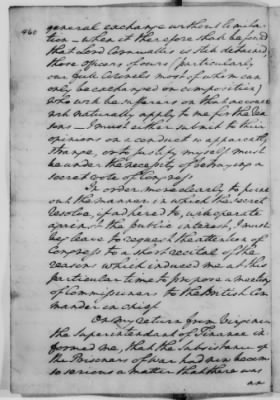 460
general exchange without limita
tion — when it therefore shall be found
that Lord Cornwallis is still detained
those officers of ours (particularly
our full Colonels most of whom can
only be exchanged on composition)
who will be sufferers on that account
will naturally apply to me for the rea
sons — I must either submit to their
opinions on a conduct so apparently
strange, or to justify myself must
be under the necessity of betraying a
secret vote of Congress
In order more clearly to point
out the manner in which the secret
resolve, if adhered to, will operate
against the public interest, I must
beg leave to request the attention of
Congress to a short recital of the
reasons which induced me at this
particular time to propose a meeting
of Commissioners to the British Com
mander in chief
On my return from Virginia
the Superintendant of Finance in
formed me, that the Subsistence of
the Prisoners of war had now become
so serious a matter that there was
an